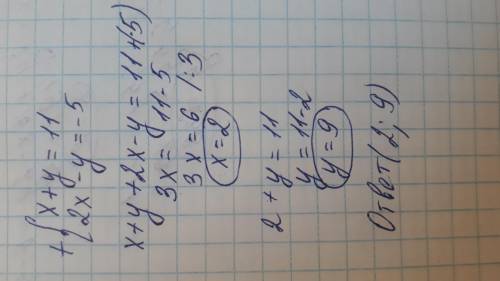 +{x+y=11
2x-y=-5
x+y+2x-y=11+(-5)
3x=11-5
3x=6 |:3
x=2
2+y=11
y=11-2
y=9
Ответ(2;9)